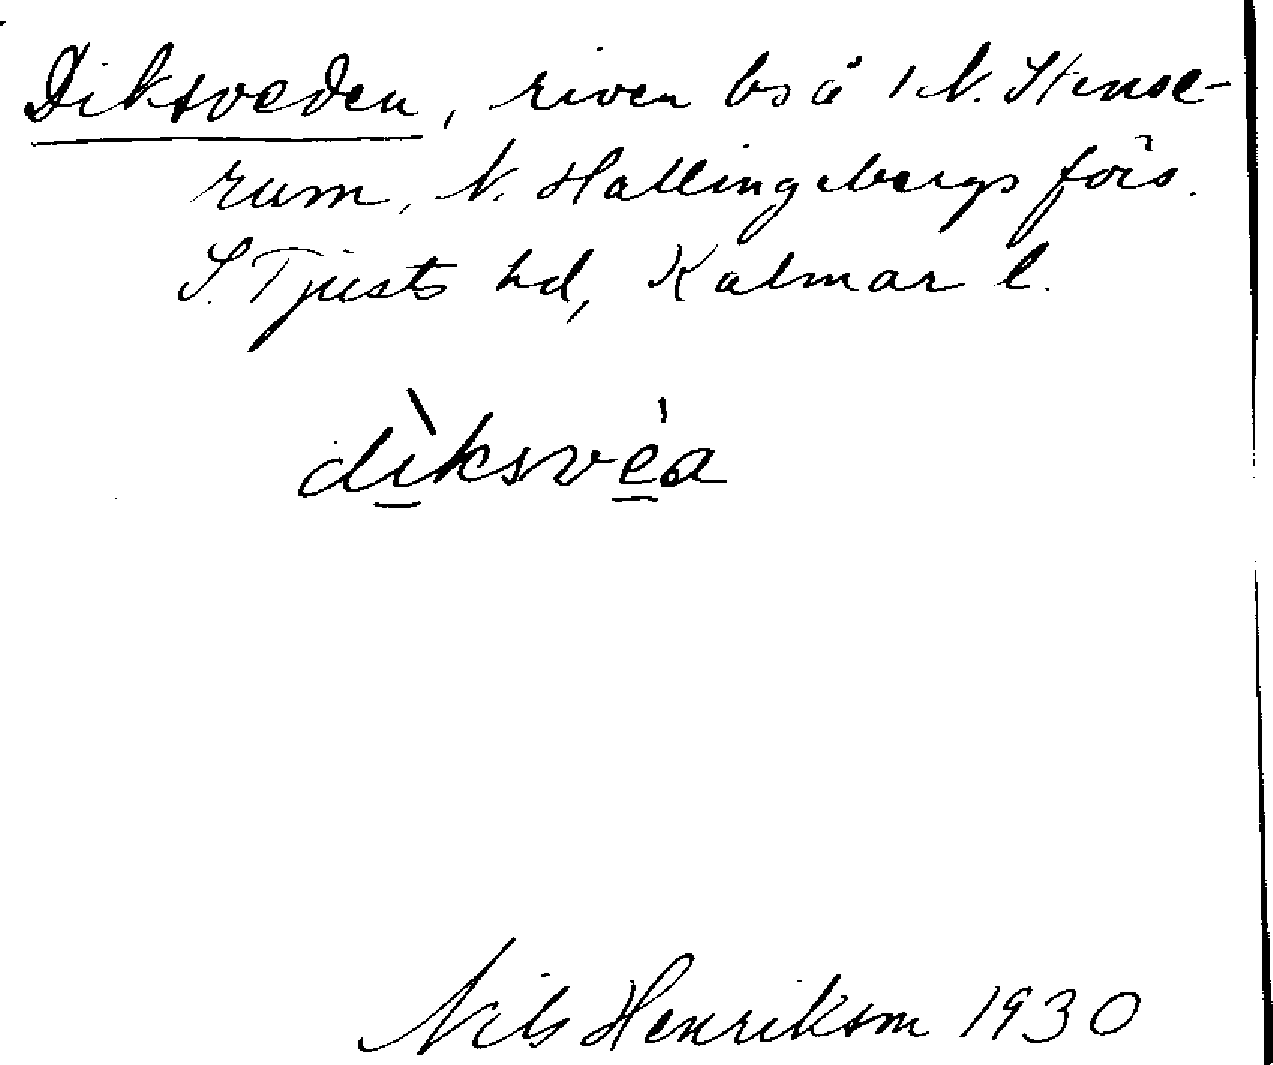 Diksveden, riven bs å 1 N. Stense-
rum, N. Hallingebergs förs.
S. Tjusts hd, Kalmar l.
dìksvéa
Nils Henrikson 1930